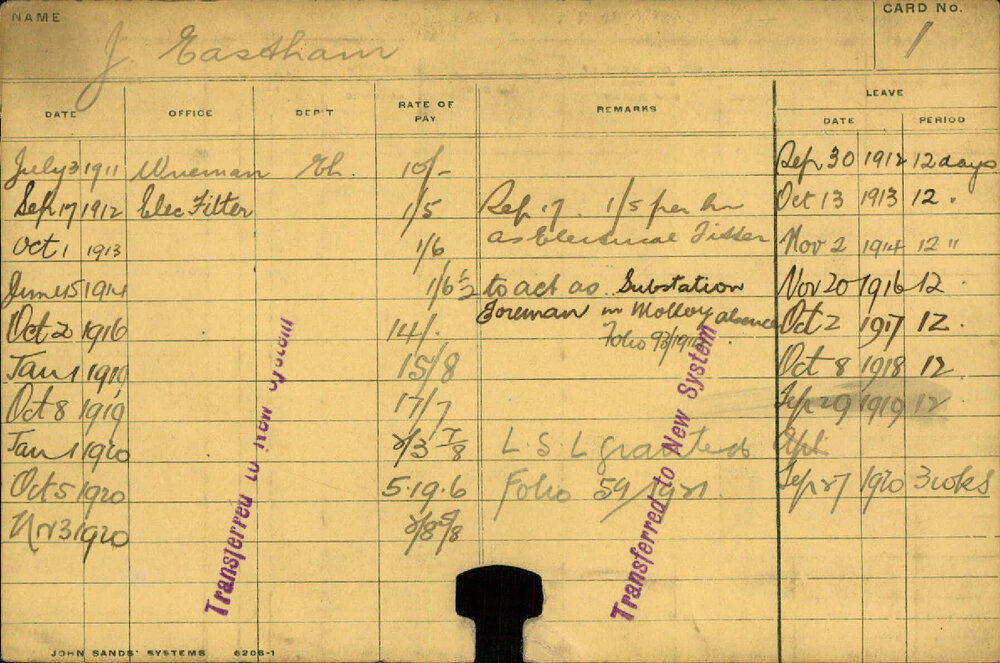 NAME
J. Eastham
CARD No.
1
DATE OFFICE DEP'T RATE OF PAY REMARKS LEAVE
DATE PERIOD
July 3 1911 Wireman El. 10/- Sep 30 1912 12 days
Sep 17 1912 Elec Fitter 1/5 Sep 17. 1/5 per hr Oct 13 1913 12 "
Oct 1 1913 1/6 as Electrical Fitter Nov 2 1914 12 "
June 15 1914 1/6 1/2 to act as Substation Nov 20 1916 12
Oct 2 1916 14/. Foreman in Molloy absence Oct 2 1917 12.
Folio 93/191
Jan 1 1919 15/8 Oct 8 1918 12
Oct 8 1919 17/7 Sep 29 1919 12
Jan 1 1920 2/3 7/8 L.S.L granted Apl
Oct 5 1920 5.19.6 Folio 59/1921 Sep 27 1920 3 wks
Nv 3 1920 2/8 5/8
Transferred to New System
Transferred to New System
JOHN SANDS' SYSTEMS 6206-1